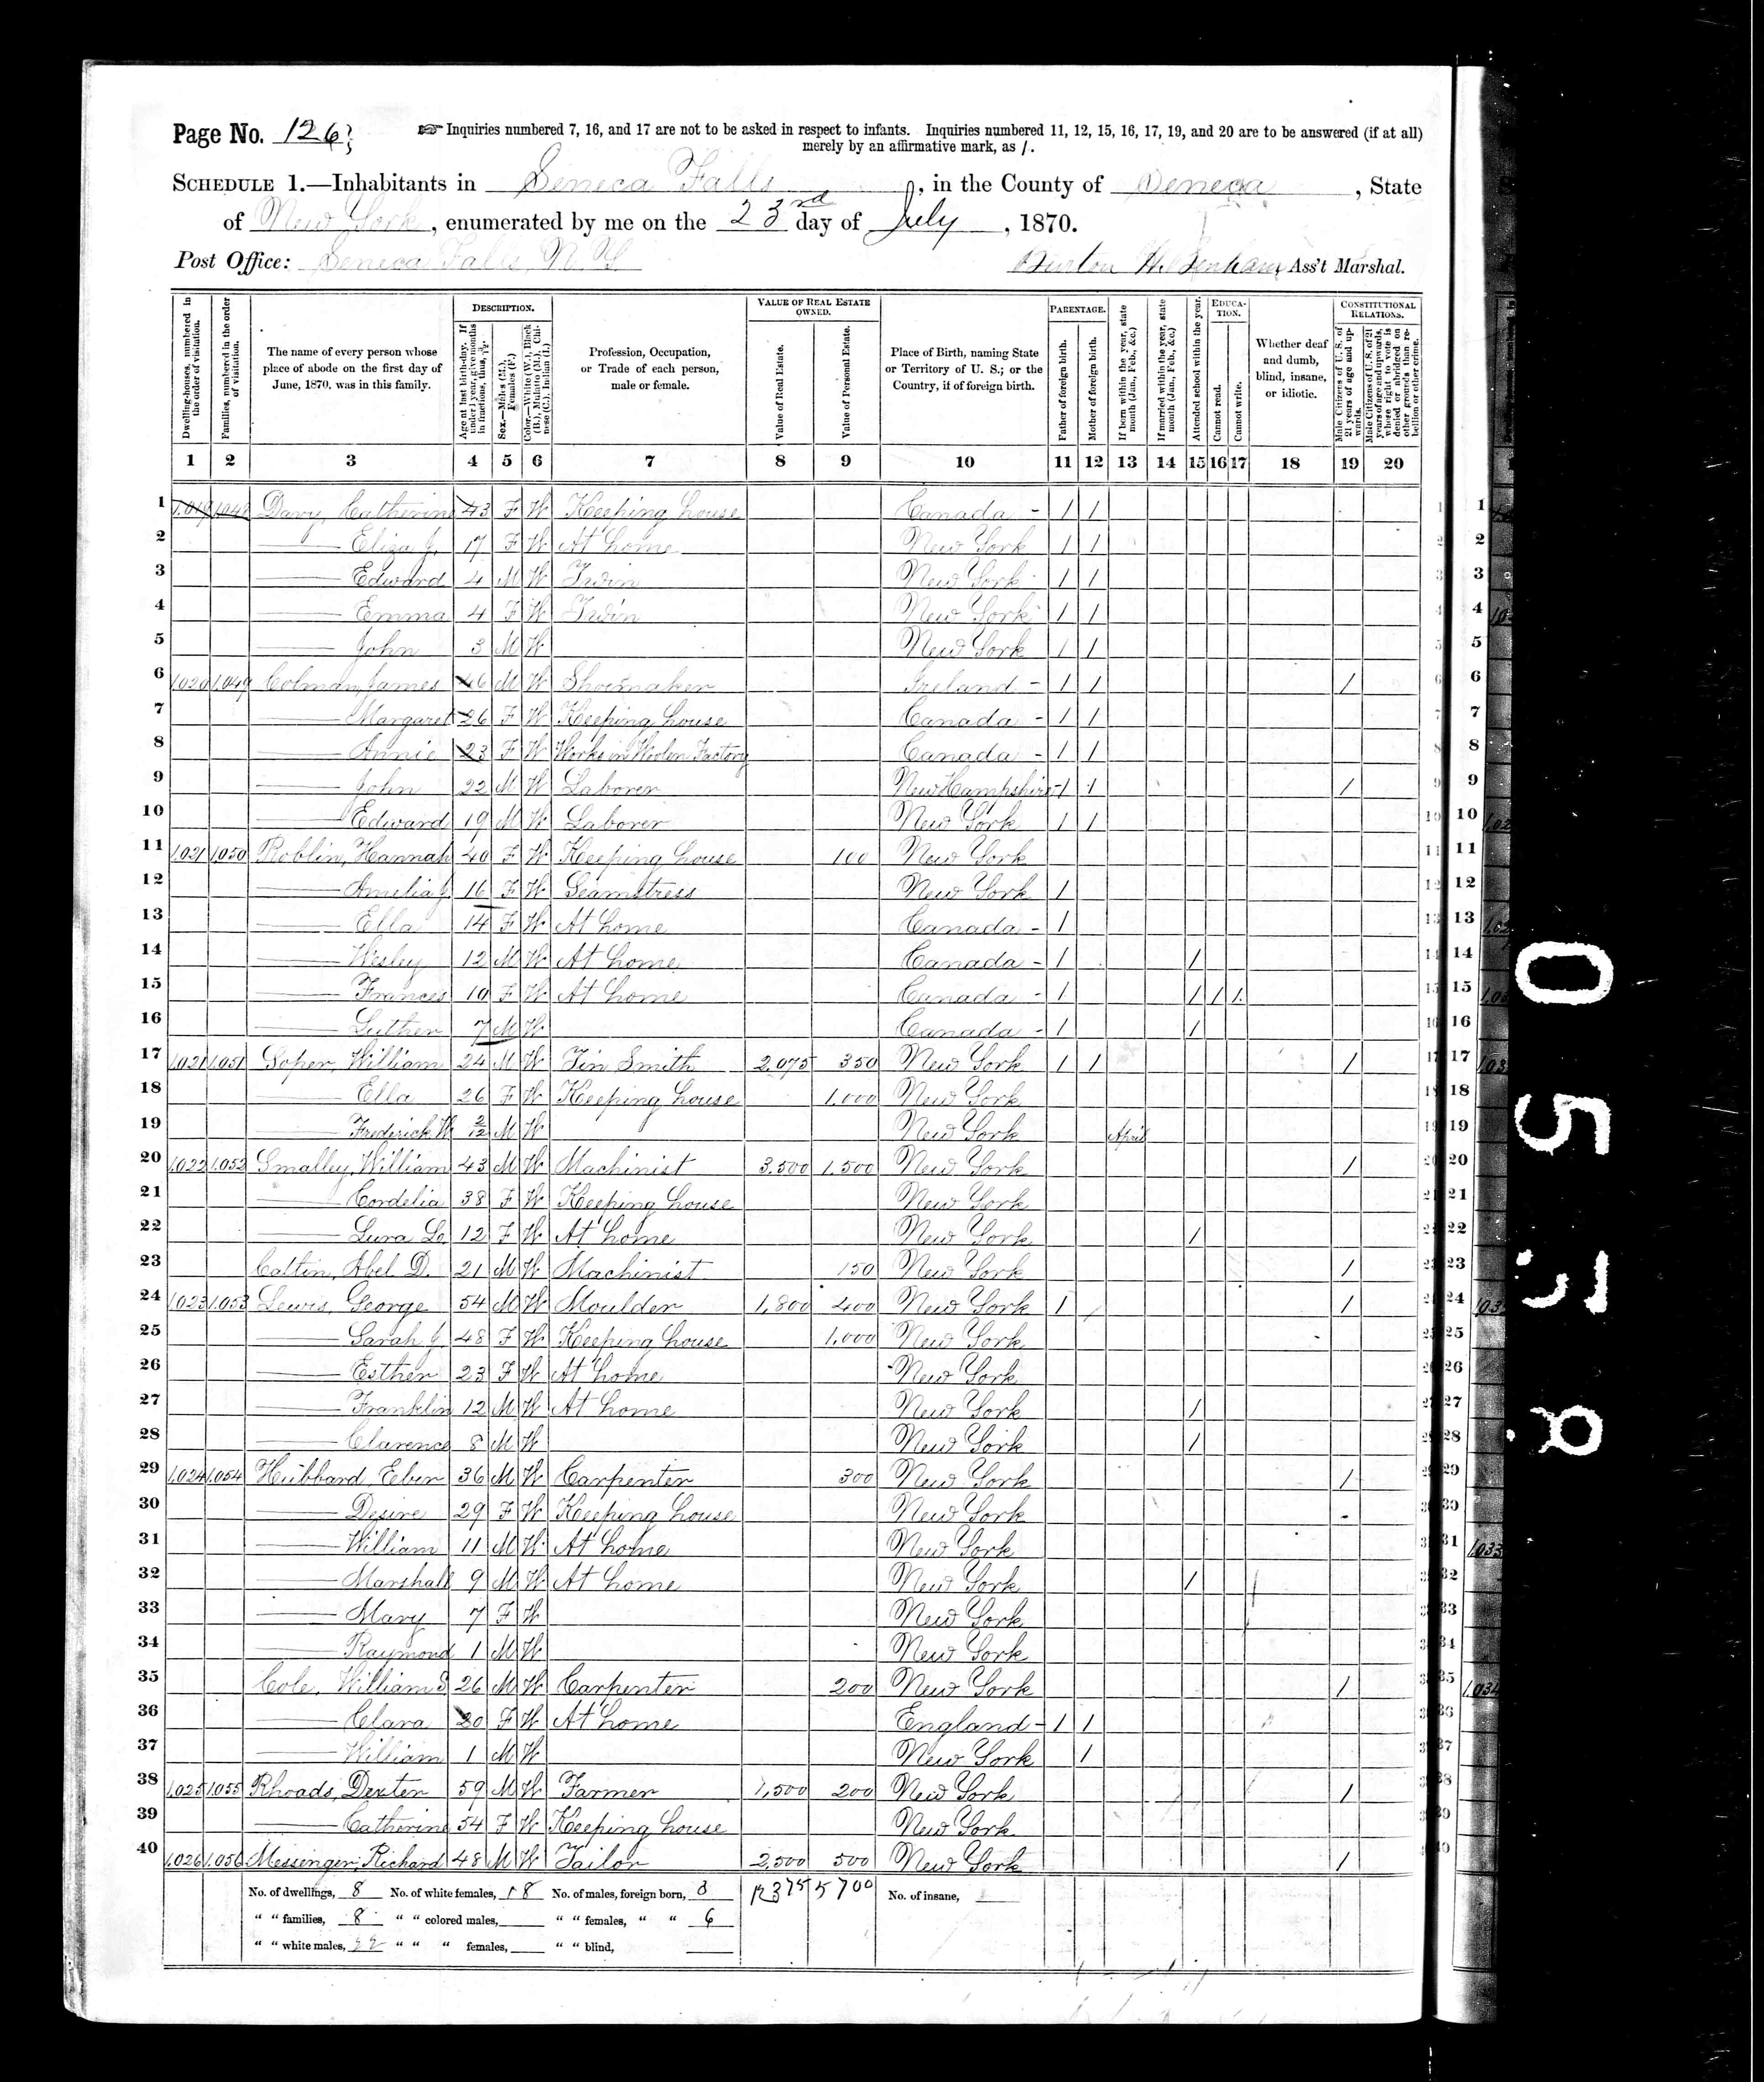 Page No. 126
☞ Inquiries numbered 7, 16, and 17 are not to be asked in respect to infants. Inquiries numbered 11, 12, 15, 16, 17, 19, and 20 are to be answered (if at all)
merely by an affirmative mark, as /.
SCHEDULE 1.—Inhabitants in Seneca Falls, in the County of Seneca, State
of New York, enumerated by me on the 23rd day of July, 1870.
Post Office: Seneca Falls N Y
Burton H. Benham, Ass't Marshal.
Dwelling-houses, numbered in the order of visitation.
Families, numbered in the order of visitation.
The name of every person whose place of abode on the first day of June, 1870, was in this family.
DESCRIPTION.
Age at last birth-day. If under 1 year, give months in fractions, thus, 3/12.
Sex.—Males (M.), Females (F.)
Color.—White (W.), Black (B.), Mulatto (M.), Chinese (C.), Indian (I.)
Profession, Occupation, or Trade of each person, male or female.
VALUE OF REAL ESTATE OWNED.
Value of Real Estate.
Value of Personal Estate.
Place of Birth, naming State or Territory of U. S.; or the Country, if of foreign birth.
PARENTAGE.
Father of foreign birth.
Mother of foreign birth.
If born within the year, state month (Jan., Feb., &c.)
If married within the year, state month (Jan., Feb., &c.)
Attended school within the year.
EDUCATION.
Cannot read.
Cannot write.
Whether deaf and dumb, blind, insane, or idiotic.
CONSTITUTIONAL RELATIONS.
Male Citizens of U. S. of 21 years of age and upwards.
Male Citizens of U. S. of 21 years of age and upwards, whose right to vote is denied or abridged on other grounds than rebellion or other crime.
1 2 3 4 5 6 7 8 9 10 11 12 13 14 15 16 17 18 19 20
1 1,019 1,048 Davy, Catherine 43 F W Keeping house Canada - / / 1
2 —— Eliza J. 17 F W At home New York / / 2
3 —— Edward 4 M W Twin New York / / 3
4 —— Emma 4 F W Twin New York / / 4
5 —— John 3 M W New York / / 5
6 1,020 1,049 Colman, James 46 M W Shoemaker Ireland - / / / 6
7 —— Margaret 26 F W Keeping house Canada - / / 7
8 —— Annie 23 F W Works in Woolen Factory Canada - / / 8
9 —— John 22 M W Laborer New Hampshire / / / 9
10 —— Edward 19 M W Laborer New York / / 10
11 1,021 1,050 Roblin, Hannah 40 F W Keeping house 100 New York 11
12 —— Amelia J. 16 F W Seamstress New York / 12
13 —— Ella 14 F W At home Canada - / 13
14 —— Wesley 12 M W At home Canada - / / 14
15 —— Frances 10 F W At home Canada - / / / / 15
16 —— Luther 7 M W Canada - / / 16
17 1,021 1,051 Soper, William 24 M W Tin Smith 2,075 350 New York / / / 17
18 —— Ella 26 F W Keeping house 1,000 New York 18
19 —— Frederick W 2/12 M W New York April 19
20 1,022 1,052 Smalley, William 43 M W Machinist 3,500 1,500 New York / 20
21 —— Cordelia 38 F W Keeping house New York 21
22 —— Lura Lo 12 F W At home New York / 22
23 Caltin, Abel D. 21 M W Machinist 150 New York / 23
24 1,023 1,053 Lewis, George 54 M W Moulder 1,800 400 New York / / 24
25 —— Sarah J. 48 F W Keeping house 1,000 New York 25
26 —— Esther 23 F W At home New York 26
27 —— Franklin 12 M W At home New York / 27
28 —— Clarence 8 M W New York / 28
29 1,024 1,054 Hubbard, Eber 36 M W Carpenter 300 New York / 29
30 —— Desire 29 F W Keeping house New York 30
31 —— William 11 M W At home New York 31
32 —— Marshall 9 M W At home New York / 32
33 —— Mary 7 F W New York 33
34 —— Raymond 1 M W New York 34
35 Cole, William S 26 M W Carpenter 200 New York / 35
36 —— Clara 20 F W At home England - / / 36
37 —— William 1 M W New York / 37
38 1,025 1,055 Rhoads, Dexter 59 M W Farmer 1,500 200 New York / 38
39 —— Catherine 54 F W Keeping house New York 39
40 1,026 1,056 Messinger, Richard 48 M W Tailor 2,500 500 New York / 40
No. of dwellings, 8 No. of white females, 18 No. of males, foreign born, 3 5700 No. of insane,
" " families, 8 " " colored males, " " females, " " 6
" " white males, 22 " " " females, " " blind,
0558